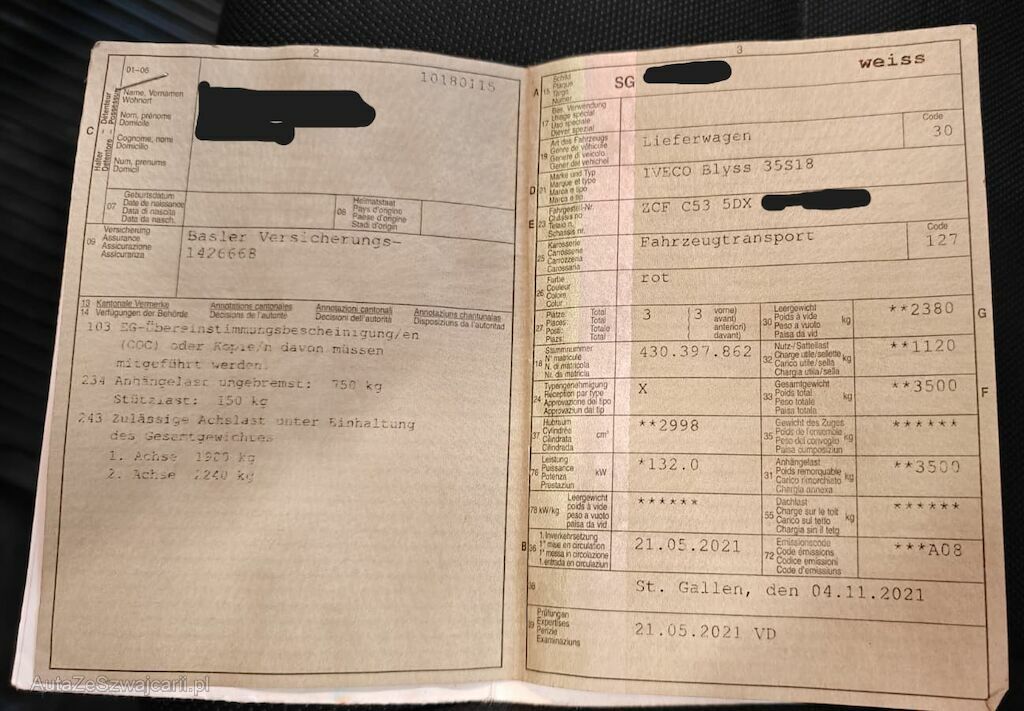 2
01-06
10180115
C
Halter
Détenteur
Detentore
Possessur
Name, Vornamen
Wohnort
Nom, prénoms
Domicile
Cognome, nomi
Domicilio
Num, prenums
Domicil
07
Geburtsdatum
Date de naissance
Data di nascita
Data da nasch.
08
Heimatstaat
Pays d'origine
Paese d'origine
Stadi d'origin
09
Versicherung
Assurance
Assicurazione
Assicuranza
Basler Versicherungs-
1426668
13 Kantonale Vermerke
Annotations cantonales
Annotazioni cantonali
Annotaziuns chantunalas
14 Verfügungen der Behörde
Décisions de l'autorité
Decisioni dell'autorità
Disposiziuns da l'autoritad
103 EG-Übereinstimmungsbescheinigung/en
(COC) oder Kopie/n davon müssen
mitgeführt werden.
234 Anhängelast ungebremst: 750 kg
Stützlast: 150 kg
243 Zulässige Achslast unter Einhaltung
des Gesamtgewichtes
1. Achse 1900 kg
2. Achse 2240 kg
3
A 15
Schild
Plaque
Targa
Numer
SG
weiss
17
Bes. Verwendung
Usage spécial
Uso speciale
Diever spezial
19
Art des Fahrzeugs
Genre de véhicule
Genere di veicolo
Gener dal vehichel
Lieferwagen
Code
30
D 21
Marke und Typ
Marque et type
Marca e tipo
Marca e tip
IVECO Blyss 35S18
E 23
Fahrgestell-Nr.
Châssis no
Telaio n.
Schassis nr.
ZCF C53 5DX
25
Karosserie
Carrosserie
Carrozzeria
Carossaria
Fahrzeugtransport
Code
127
26
Farbe
Couleur
Colore
Colur
rot
27
Plätze: Total
Places: Total
Posti: Totale
Plazs: Total
3
(3
vorne)
avant)
anteriori)
davant)
30
Leergewicht
Poids à vide
Peso a vuoto
Paisa da vid
kg
**2380
G
18
Stammnummer
N° matricule
N. di matricola
Nr. da matricla
430.397.862
32
Nutz-/Sattellast
Charge utile/sellette
Carico utile/sella
Chargia utila/sella
kg
**1120
24
Typengenehmigung
Réception par type
Approvazione del tipo
Approvaziun dal tip
X
33
Gesamtgewicht
Poids total
Peso totale
Paisa totala
kg
**3500
F
37
Hubraum
Cylindrée
Cilindrata
Cilindrada
cm³
**2998
35
Gewicht des Zuges
Poids de l'ensemble
Peso del convoglio
Paisa cumposiziun
kg
******
76
Leistung
Puissance
Potenza
Prestaziun
kW
*132.0
31
Anhängelast
Poids remorquable
Carico rimorchiato
Chargia annexa
kg
**3500
78 kW/kg
Leergewicht
poids à vide
peso a vuoto
paisa da vid
******
55
Dachlast
Charge sur le toit
Carico sul tetto
Chargia sin il tetg
kg
******
B 36
1. Inverkehrsetzung
1re mise en circulation
1a messa in circolazione
1. entrada en circulaziun
21.05.2021
72
Emissionscode
Code émissions
Codice emissioni
Code d'emissiuns
***A08
38
St. Gallen, den 04.11.2021
39
Prüfungen
Expertises
Perizie
Examinaziuns
21.05.2021 VD
AutaZeSzwajcarii.pl